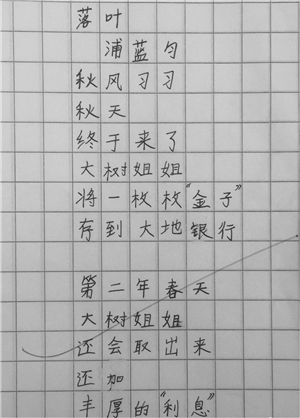 落叶
浦蓝匀
秋风习习
秋天
终于来了
大树姐姐
将一枚枚“金子”
存到大地银行
第二年春天
大树姐姐
还会取出来
还加
丰厚的“利息”